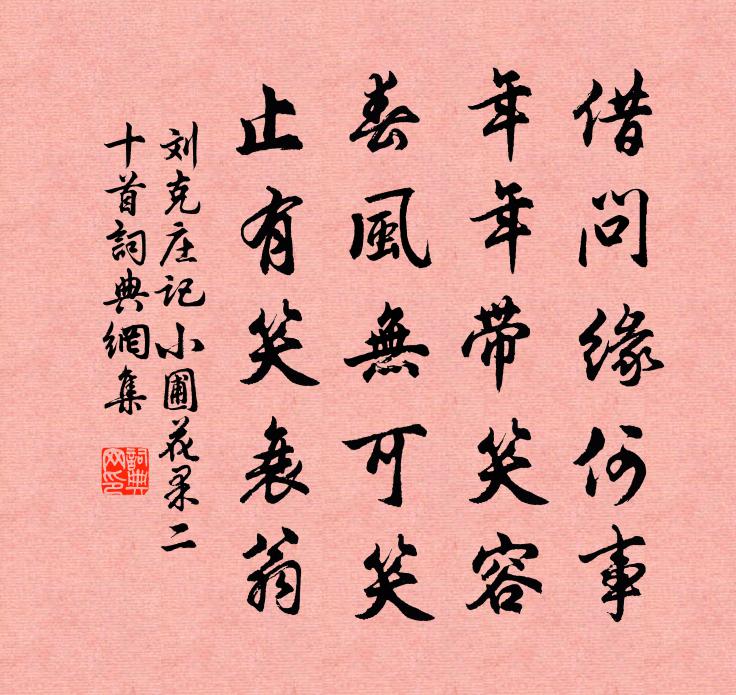 借问缘何事
年年带笑容
春風無可笑
止有笑衰翁
刘克庄记小圃花果二
十首詞典網集
詞典
网印